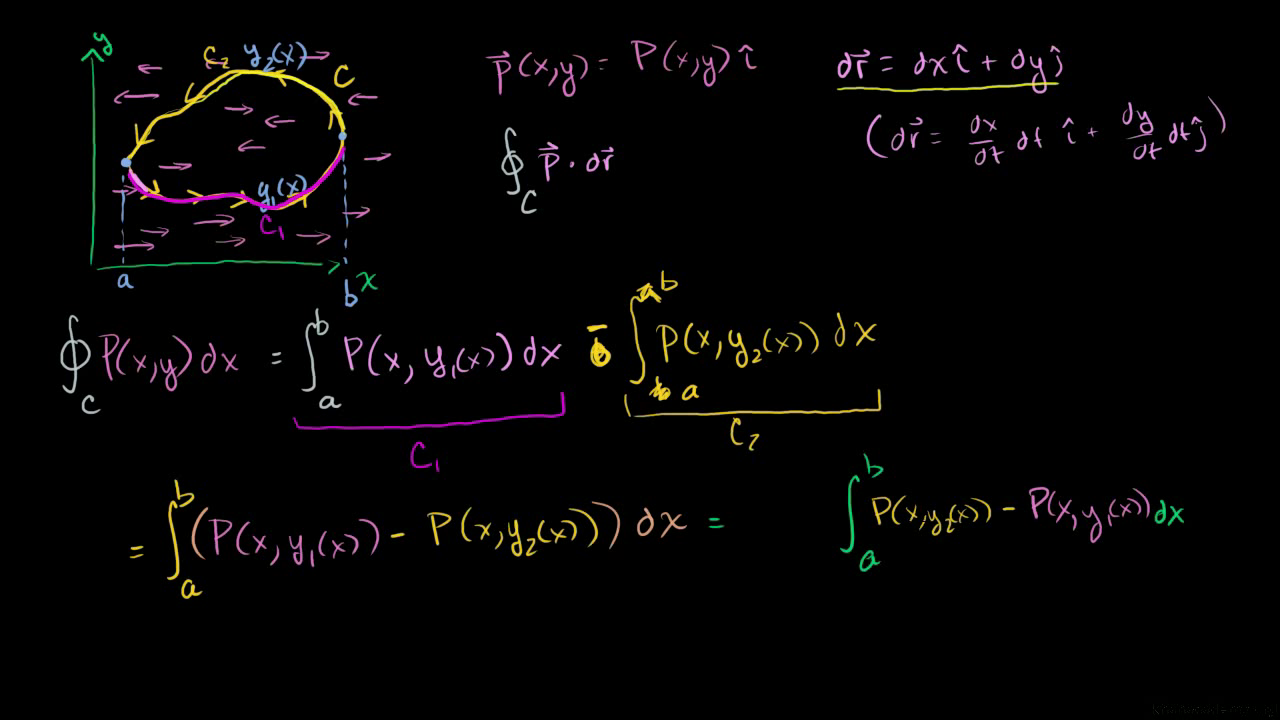 y
C₂ y₂(x)
C
y₁(x)
C₁
a
b
x
p⃗(x,y) = P(x,y) î
∮_C p⃗ · dr⃗
dr⃗ = dx î + dy ĵ
(dr⃗ = dx/dt dt î + dy/dt dt ĵ)
∮_C P(x,y) dx = ∫_a^b P(x, y₁(x)) dx - ∫_a^b P(x, y₂(x)) dx
C₁
C₂
= ∫_a^b (P(x, y₁(x)) - P(x, y₂(x))) dx = ∫_a^b P(x, y₂(x)) - P(x, y₁(x)) dx